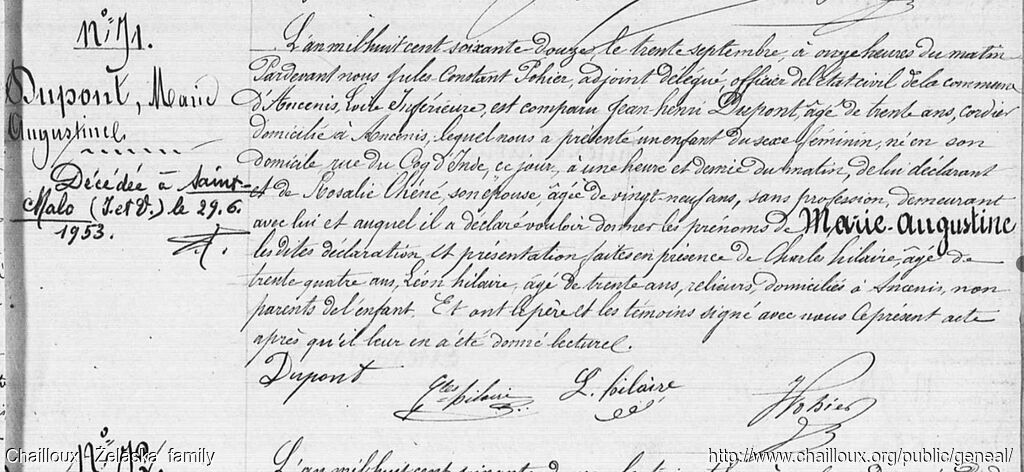 N° 71.
Dupont, Marie
Augustine
Décédée à Saint-
Malo (I. et V.) le 29.6.
1953.
L'an mil huit cent soixante douze, le trente septembre, à onze heures du matin
Pardevant nous Jules Constant Pohier, adjoint délégué, officier de l'état civil de la commune
d'Ancenis, Loire Inférieure, est comparu Jean henri Dupont, âgé de trente ans, cordier
domicilié à Ancenis, lequel nous a présenté un enfant du sexe féminin, né en son
domicile, rue du Coq d'Inde, ce jour, à une heure et demie du matin, de lui déclarant
et de Rosalie Chené, son épouse, âgée de vingt-neuf ans, sans profession, demeurant
avec lui et auquel il a déclaré vouloir donner les prénoms de Marie-Augustine
les dites déclaration et présentation faites en présence de Charles hilaire, âgé de
trente quatre ans, Léon hilaire, âgé de trente ans, relieurs, domiciliés à Ancenis, non
parents de l'enfant. Et ont le père et les témoins signé avec nous le présent acte
après qu'il leur en a été donné lecture.
Dupont Ches hilaire L. hilaire Pohier
N° 72.
L'an mil huit cent soixante douze, le trente septembre, à
Chailloux - Zelaska family
http://www.chailloux.org/public/geneal/